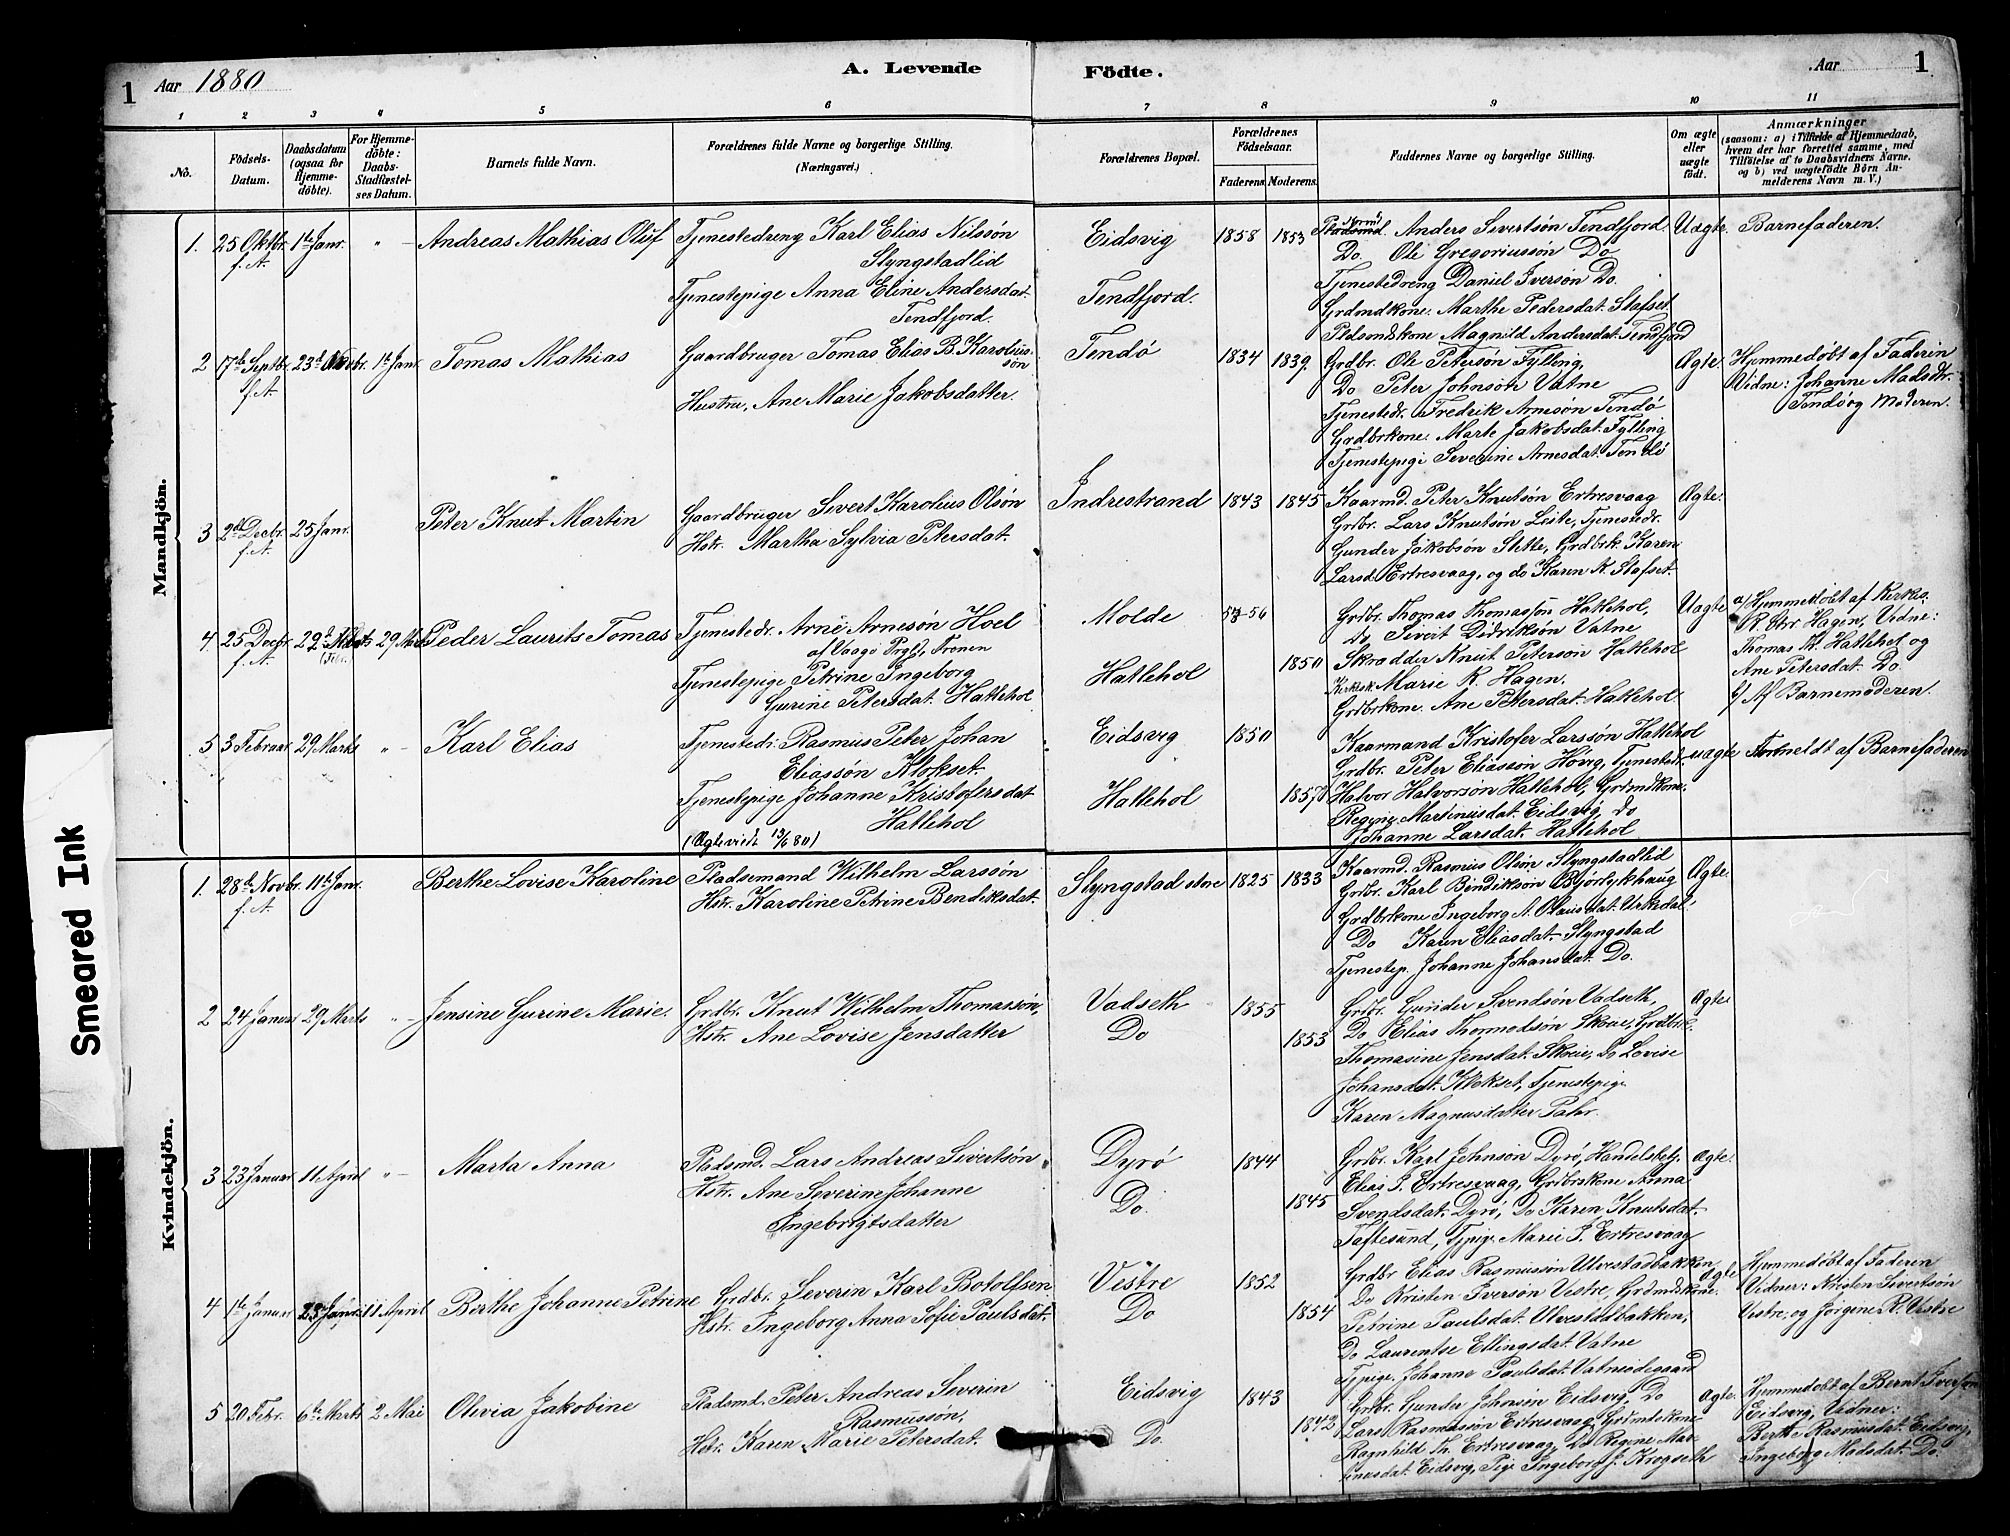 1 Aar 1880 A. Levende Födte. Aar 1
1 2 3 4 5 6 7 8 9 10 11
No.
Födsels-Datum.
Daabsdatum (ogsaa for Hjemme-döbte).
For Hjemme-döbte: Daabs Stadfæstel-ses Datum.
Barnets fulde Navn.
Forældrenes fulde Navne og borgerlige Stilling. (Næringsvei.)
Forældrenes Bopæl.
Forældrenes Födselsaar.
Faderens. Moderens.
Faddernes Navne og borgerlige Stilling.
Om ægte eller uægte födt.
Anmærkninger
(saasom: a) i Tilfælde af Hjemmedaab, hvem der har forrettet samme, med Tilföielse af to Daabsvidners Navne. og b) ved uægtefödte Börn An-melderens Navn m. V.)
Mandkjön.
1. 25 Oktbr. f. A. 1ste Janr. " - Andreas Mathias Oluf
Tjenestedreng Karl Elias Nilssön
Slyngstadlid
Tjenestepige Anna Eline Andersdat.
Tendfjord.
Eidsvig
Tendfjord.
1858 1853
Anders Sivertsön Tendfjord.
Do. Ole Gregoriussön Do
Tjenestedreng Daniel Iversön Do.
Grdmdkone. Marthe Pedersdat. Stafset.
Pldsmdskone Magnild Andersdat. Tendfjord
Uægte. Barnefaderen.
2 17de Septbr. f. A. 23de Novbr. 1ste Janr. Tomas Mathias
Gaardbruger Tomas Elias B. Karolius-
sön
Hustru, Ane Marie Jakobsdatter.
Tendö
1834 1839.
Grdbr. Ole Petersön Fylling,
Do Peter Johnsön Vatne
Tjenestedr. Fredrik Arnesön Tendö
Grdbrkone. Marte Jakobsdat. Fylling
Tjenestepige Severine Arnesdat. Tendö
Ægte.
Hjemmedöbt af Faderen
Vidne: Johanne Madsdtr.
Tendö og Moderen.
3 2den Decbr. f. A. 25 Janr. Peter Knut Martin
Gaardbruger Sivert Karolius Olsön
Hstr. Martha Sylvia Petersdat.
Indrestrand
1843 1845
Kaarmd. Peter Knutsön Ertresvaag
Grdbr. Lars Knutsön Leite, Tjenestedr.
Gunder Jakobsön Slette, Grdbrk. Karen
Larsd. Ertresvaag, og do Karen K. Stafset.
Ægte.
4 25 Decbr. f. A. (Febr.) 29 Marts Peder Laurits Tomas
Tjenestedr. Arne Arnesön Hoel
af Vaagö Prgld, Fronen
Tjenestepige Petrine Ingeborg
Gurine Petersdat. Hatlehol
Molde
Hatlehol
1850
Grdbr. Thomas Thomassön Hatlehol,
Do Sivert Didriksön Vatne
Skrædder Knut Peterson Hatlehol
Kirkesk. Marie K. Hagen.
Grdbrkone. Ane Petersdat. Hatlehol.
Uægte
a/ Hjemmedöbt af Kirkes.
K. Str Hagen, Vidne:
Thomas Th. Hatlehol og
Ane Petersdat. Do.
b/ Af Barnemoderen.
5 3 Februar 29 Marts " - Karl Elias
Tjenestedr. Rasmus Peter Johan
Eliassön Klokset.
Tjenestepige Johanne Kristofersdat
Hatlehol
(Ægteviet 13/6 80)
Eidsvig
Hatlehol
1850
1857
Kaarmand Kristofer Larssön Hatlehol
Grdbr. Peter Eliasson Hövig, Tjenestedr.
Halvor Halvorsön Hatlehol, Grdmdkone.
Regine Martinusdat. Eidsvig, Do
Johanne Larsdat. Hatlehol.
uægte Formeldt af Barnefaderen
Kvindekjön.
1. 28de Novbr. f. A. 11te Janr. Berthe Lovise Karoline
Pladsemand Wilhelm Larssön
Hstr. Karoline Petrine Bendiksdat.
Slyngstad store
1825 1833
Kaarmd. Rasmus Olsön Slyngstadlid
Grdbr. Karl Bendiksön Bjørlykhaug
Grdbrkone Ingeborg A. Olausdat. Urkedal.
Do Karen Eliasdat. Slyngstad
Tjenestep. Johanne Johansdat. Do.
Ægte.
2 24 Januar 29 Marts " - Jensine Gurine Marie.
Grdbr. Knut Wilhelm Thomassön,
Hstr. Ane Lovise Jensdatter
Vadseth
Do
1855
1853
Grdbr. Gunder Svendsön Vadseth,
Do Elias Thormodsön Skoeie, Grdbrk.
Thomasine Jensdat. Skoeie, Do Lovise
Johansdat. Klokset, Tjenestepige
Karen Magnusdatter Tahr.
Ægte
3 23 Januar 11 April " - Marta Anna
Pladsmd. Lars Andreas Sivertsön
Hstr. Ane Severine Johanne
Ingebrigtsdatter
Dyrö
Do.
1844
1845
Grdbr. Karl Johnsön Dyrö, Handelsbetj.
Elias P. Ertresvaag, Grdbrskone Anna
Svendsdat. Dyrö, Do Karen Knutsdat.
Taftesund, Tjpige. Marie P. Ertresvaag
Ægte.
4 1ste Januar 25 Janr. 11 April Berthe Johanne Petrine
Grdbr. Severin Karl Botolfsen
Hstr. Ingeborg Anna Sofie Paulsdat.
Vestre
Do
1852
1854
Grdbr Elias Rasmussön Ulvestadbakken
Do Kristen Iversön Vestre, Grdmdskone.
Petrine Paulsdat. Ulvestadbakken,
Do Laurentse Ellingsdat. Vatne
Tjpige. Johanne Paulsdat. Vatneödegaard
ægte
Hjemmedöbt af Faderen
Vidner: Kristen Sivertsön
Vestre, og Jörgene R. Vestre
5 20 Febr. 6te Marts 2 Mai Olivia Jakobine
Pladsmd. Peter Andreas Severin
Rasmussön,
Hstr. Karen Marie Petersdat.
Eidsvig
Do.
1843
1842
Grdbr. Gunder Johnsön Eidsvig, Do
Lars Rasmussön Ertresvaag, Grdmdskone
Ragnhild Th. Ertresvaag, Do Regine Mar-
tinusdat. Eidsvig, Pig. Ingeborg J. Krogseth
ægte.
Hjemmedöbt af Bernt Iversön
Eidsvig, Vidner:
Berth. Rasmusdat. Eidsvig,
Ingeborg Madsdat. Do.
Smeared Ink